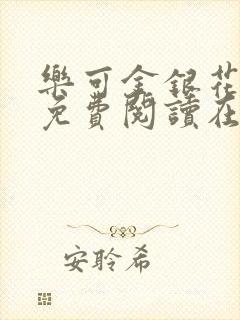 樂可金銀花
免費閱讀在
安聆希